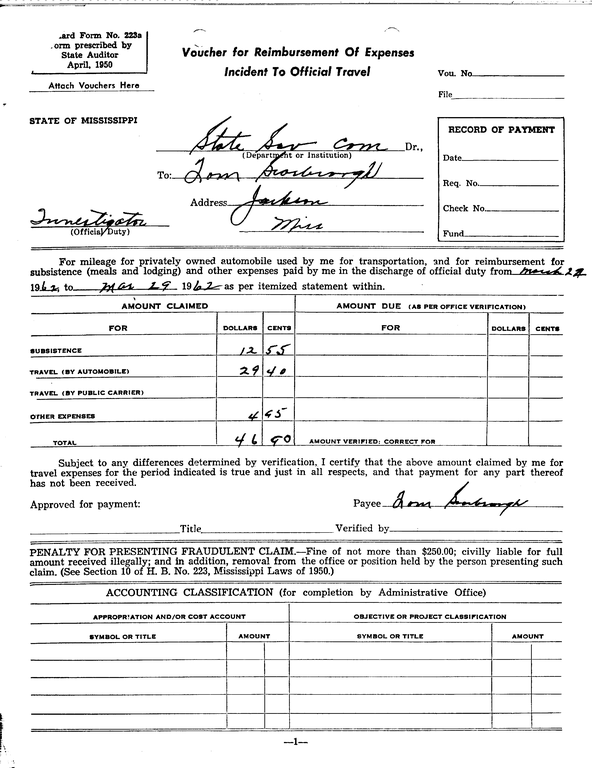 .ard Form No. 223a
.orm prescribed by
State Auditor
April, 1950
Attach Vouchers Here
Voucher for Reimbursement Of Expenses
Incident To Official Travel
Vou. No.
File
STATE OF MISSISSIPPI
State Sov Com Dr.,
(Department or Institution)
To: Tom Scarbrough
Address Jackson
Miss
Investigator
(Official Duty)
RECORD OF PAYMENT
Date
Req. No.
Check No.
Fund
For mileage for privately owned automobile used by me for transportation, and for reimbursement for
subsistence (meals and lodging) and other expenses paid by me in the discharge of official duty from March
1962 to Mar 29 1962 as per itemized statement within.
AMOUNT CLAIMED
AMOUNT DUE (AS PER OFFICE VERIFICATION)
FOR DOLLARS CENTS FOR DOLLARS CENTS
SUBSISTENCE 12 55
TRAVEL (BY AUTOMOBILE) 29 40
TRAVEL (BY PUBLIC CARRIER)
OTHER EXPENSES 4 95
TOTAL 46 90 AMOUNT VERIFIED: CORRECT FOR
Subject to any differences determined by verification, I certify that the above amount claimed by me for
travel expenses for the period indicated is true and just in all respects, and that payment for any part thereof
has not been received.
Approved for payment: Payee Tom Scarbrough
Title Verified by
PENALTY FOR PRESENTING FRAUDULENT CLAIM.—Fine of not more than $250.00; civilly liable for full
amount received illegally; and in addition, removal from the office or position held by the person presenting such
claim. (See Section 10 of H. B. No. 223, Mississippi Laws of 1950.)
ACCOUNTING CLASSIFICATION (for completion by Administrative Office)
APPROPRIATION AND/OR COST ACCOUNT OBJECTIVE OR PROJECT CLASSIFICATION
SYMBOL OR TITLE AMOUNT SYMBOL OR TITLE AMOUNT
—1—